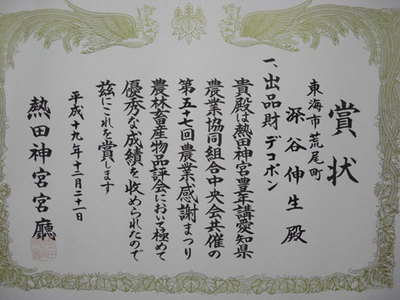 賞状
東海市荒尾町
深谷伸生殿
一、出品財デコポン
貴殿は熱田神宮豊年講愛知県
農業協同組合中央会共催の
第五十七回農業感謝まつり
農林畜産物品評会において極めて
優秀な成績を收められたので
茲にこれを賞します
平成十九年十二月二十一日
熱田神宮宮廳